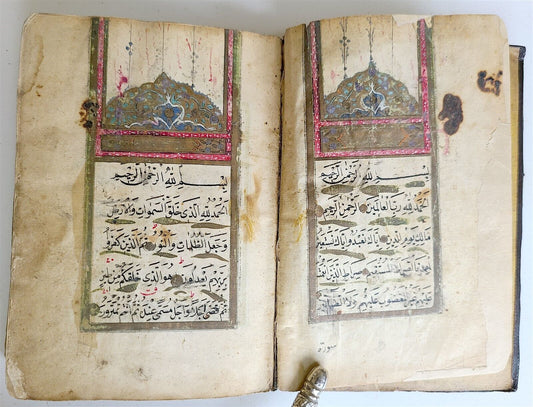 بسم الله الرحمن الرحيم
الحمد لله رب العالمين الرحمن الرحيم
مالك يوم الدين اياك نعبد واياك نستعين
اهدنا الصراط المستقيم صراط الذين انعمت
عليهم غير المغضوب عليهم ولا الضالين
سورة
بسم الله الرحمن الرحيم
الحمد لله الذي خلق السموات والارض
وجعل الظلمات والنور ثم الذين كفروا
بربهم يعدلون هو الذي خلقكم من طين
ثم قضى اجلا واجل مسمى عنده ثم انتم تمترون